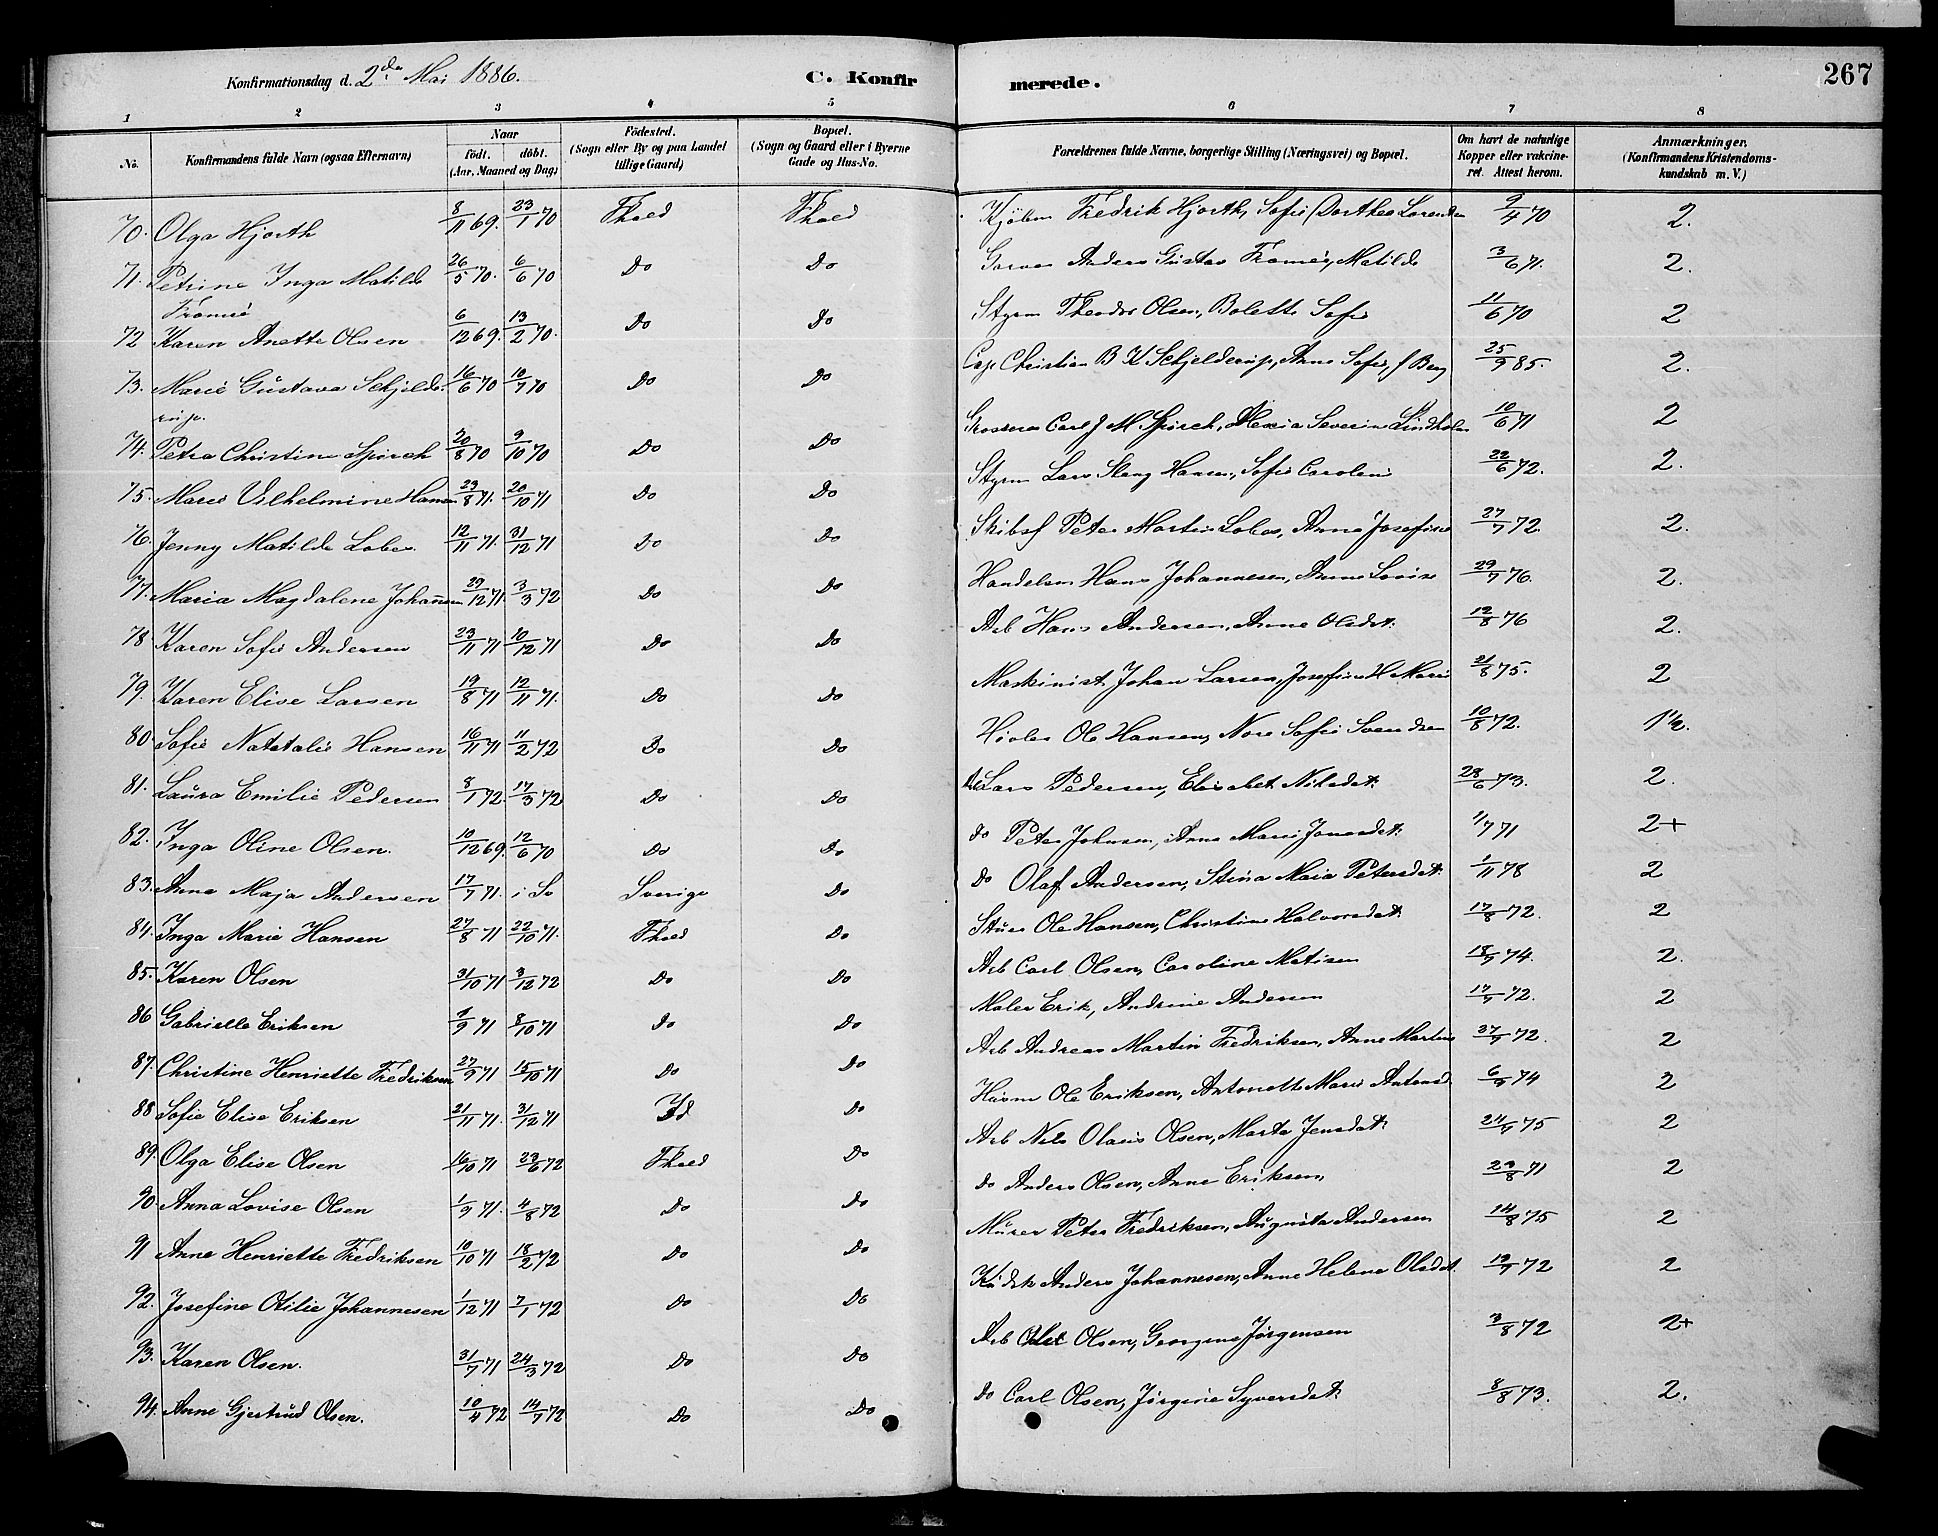 Konfirmationsdag d. 2den Mai 1886. C. Konfirmerede. 267
1 2 3 4 5 6 7 8
No. Konfirmandens fulde Navn (ogsaa Efternavn) Naar født. døbt. (Aar, Maaned og Dag) Fødested. (Sogn eller By og paa Landet tillige Gaard) Bopæl. (Sogn og Gaard eller i Byerne Gade og Hus-No. Forældrenes fulde Navne, borgerlige Stilling (Næringsvei) og Bopæl. Om havt de naturlige Kopper eller vakcineret. Attest herom. Anmærkninger. (Konfirmandens Kristendomskundskab m. V.)
70. Olga Hjorth 8/11 69. 23/1 70 Fhald Fhald Kjøbm Fredrik Hjorth, Sofie Dorthea Lorentzen 9/4 70 2.
71. Petrine Inga Matilde Tromie 26/5 70. 6/6 70 Do Do Garver Anders Gustav Tromie, Matilde 3/6 71. 2.
72 Karen Anette Olsen 6/12 69. 13/2 70. Do Do Styrm Theodor Olsen, Bolette Sofie 11/6 70 2
73. Marie Gustava Schjelderup. 16/6 70 10/7 70 Do Do Cap Christian B K Schjelderup, Anne Sofie, f Berg 25/9 85. 2.
74. Petra Christine Spirch 20/8 70 9/10 70 Do Do Grosserer Carl J M Spirch, Alexia Severine Lindholm 10/6 71 2
75. Marie Vilhelmine Hansen 23/8 71. 20/10 71 Do Do Styrm Lars Slang Hansen, Sofie Caroline 22/6 72. 2.
76. Jenny Matilde Lober. 12/11 71. 31/12 71 Do Do Skibsf Peter Martin Lober, Anne Josefine 27/7 72. 2.
77. Maria Magdalene Johannesen 29/12 71. 3/3 72 Do Do Handelsm Hans Johannesen, Anne Lovise 29/7 76. 2.
78. Karen Sofie Andersen 23/11 71 10/12 71 Do Do Arb Hans Andersen, Anne Olsdat. 12/8 76 2.
79. Karen Elise Larsen 19/8 71 12/11 71. Do Do Maskinist Johan Larsen, Josefine H Marie 21/8 75. 2
80. Sofie Natatalie Hansen 16/11 71 11/2 72 Do Do Høvler Ole Hansen, Nore Sofie Svendsen 10/8 72. 1½.
81. Laura Emilie Pedersen 8/1 72 17/3 72 Do Do Do Lars Pedersen, Elisabet Nilsdat. 28/6 73. 2.
82. Inga Oline Olsen. 10/12 69. 12/6 70 Do Do do Peter Johnsen, Anne Marie Jonasdat. 1/7 71 2+
83. Anna Maja Andersen 17/7 71. i Sv Sverige Do Do Olaf Andersen, Stina Maia Petersdat. 1/11 78 2
84. Inga Marie Hansen 27/8 71 22/10 71. Fhald Do Stuer Ole Hansen, Christine Halvorsdat. 17/8 72. 2
85. Karen Olsen 31/10 71 3/12 72 Do Do Arb Carl Olsen, Caroline Matisen 18/9 74. 2.
86 Gabrielle Eriksen 7/9 71 8/10 71 do Do Maler Erik, Andrine Andersen 17/9 72. 2
87. Christine Henriette Fredriksen 27/9 71 15/10 71 Do Do Arb Andreas Martin Fredriksen, Anne Martine 27/9 72. 2
88 Sofie Elise Eriksen 21/11 71. 31/12 71 Id Do Husm Ole Eriksen, Antonette Marie Antonsd. 6/9 74 2
89. Olga Elise Olsen 16/10 71 23/6 72 Fhald Do Arb Nils Olaus Olsen, Marta Jensdat. 24/9 75 2
90. Anna Lovise Olsen 1/9 71. 4/8 72 Do Do do Anders Olsen, Anne Eriksen, 23/8 71 2
91 Anne Henriette Fredriksen 10/10 71 18/2 72 Do Do Murer Peter Fredriksen, Augusta Andersen 14/8 75 2
92. Josefine Otilie Johannesen 1/12 71 7/1 72 Do Do Kudsk Anders Johannesen, Anne Helene Olsdat. 19/9 72 2
93. Karen Olsen. 31/7 71 24/3 72 Do Do Arb Olsen, Georgine Jørgensen 3/8 72 2+
94. Anne Gjertrud Olsen. 10/4 72 14/7 72 Do Do do Carl Olsen, Jørgine Syversdat. 8/8 73. 2.